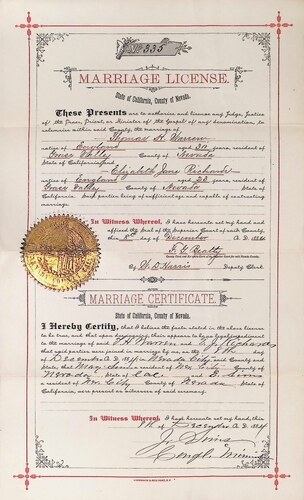 No 535
MARRIAGE LICENSE.
State of California, County of Nevada.
These Presents are to authorize and license any Judge, Justice
of the Peace, Priest, or Minister of the Gospel of any denomination, to
solemnize within said County, the marriage of
Thomas H. Warren
native of England aged 30 years, resident of
Grass Valley County of Nevada
State of California, and
Elizabeth Jane Richards
native of England aged 23 years, resident of
Grass Valley County of Nevada State of
California. Said parties being of sufficient age and capable of contracting
marriage.
In Witness Whereof, I have hereunto set my hand and
affixed the Seal of the Superior Court of said County,
this 8th day of December A. D. 188
F. G. Beatty
By D. B. Harris Deputy Clerk
MARRIAGE CERTIFICATE.
State of California, County of Nevada.
I Hereby Certify, that I believe the facts stated in the above license
to be true, and that upon due
marriage of said T H Warren and E J Richards
that said parties were joined in marriage by me on the 8th day
of December A. D. 188 in Nevada City said County and
State; that May a resident of Nev City County of
Nevada State of Cal and
a resident of Nev City County of Nevada State of
California, were present as witnesses of said ceremony.
In Witness Whereof, I have hereunto set my hand, this
8th of December A. D. 188
J. Sims
Congl. Minister